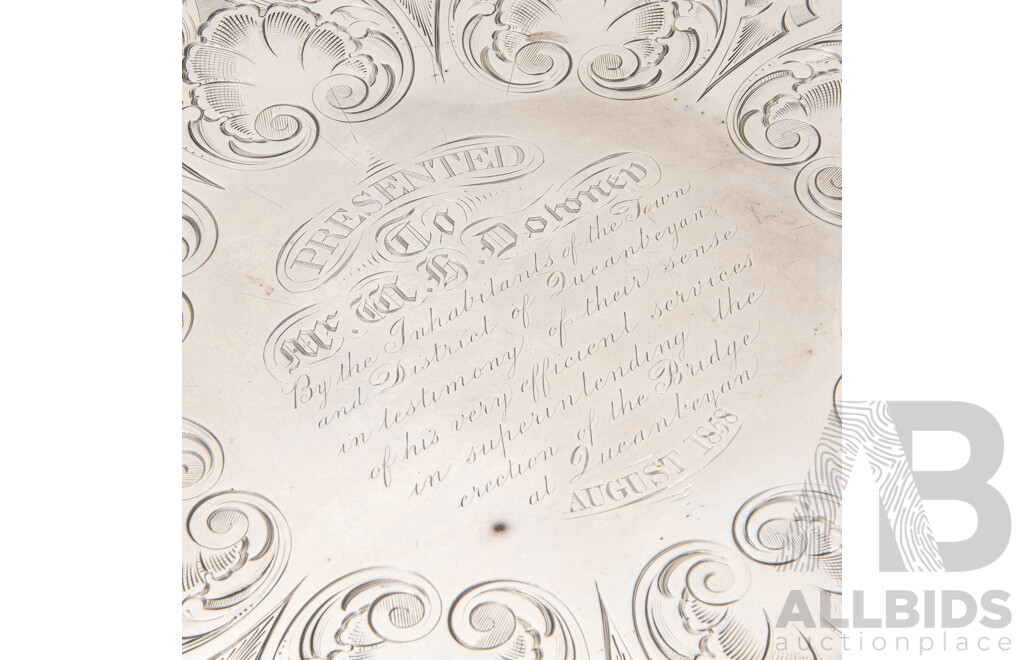 PRESENTED
To
Mr. W. H. Downey
By the Inhabitants of the Town
and District of Queanbeyan,
in testimony of their sense
of his very efficient services
in superintending the
erection of the Bridge
at Queanbeyan
AUGUST 1858
AB
ALLBIDS
auctionplace